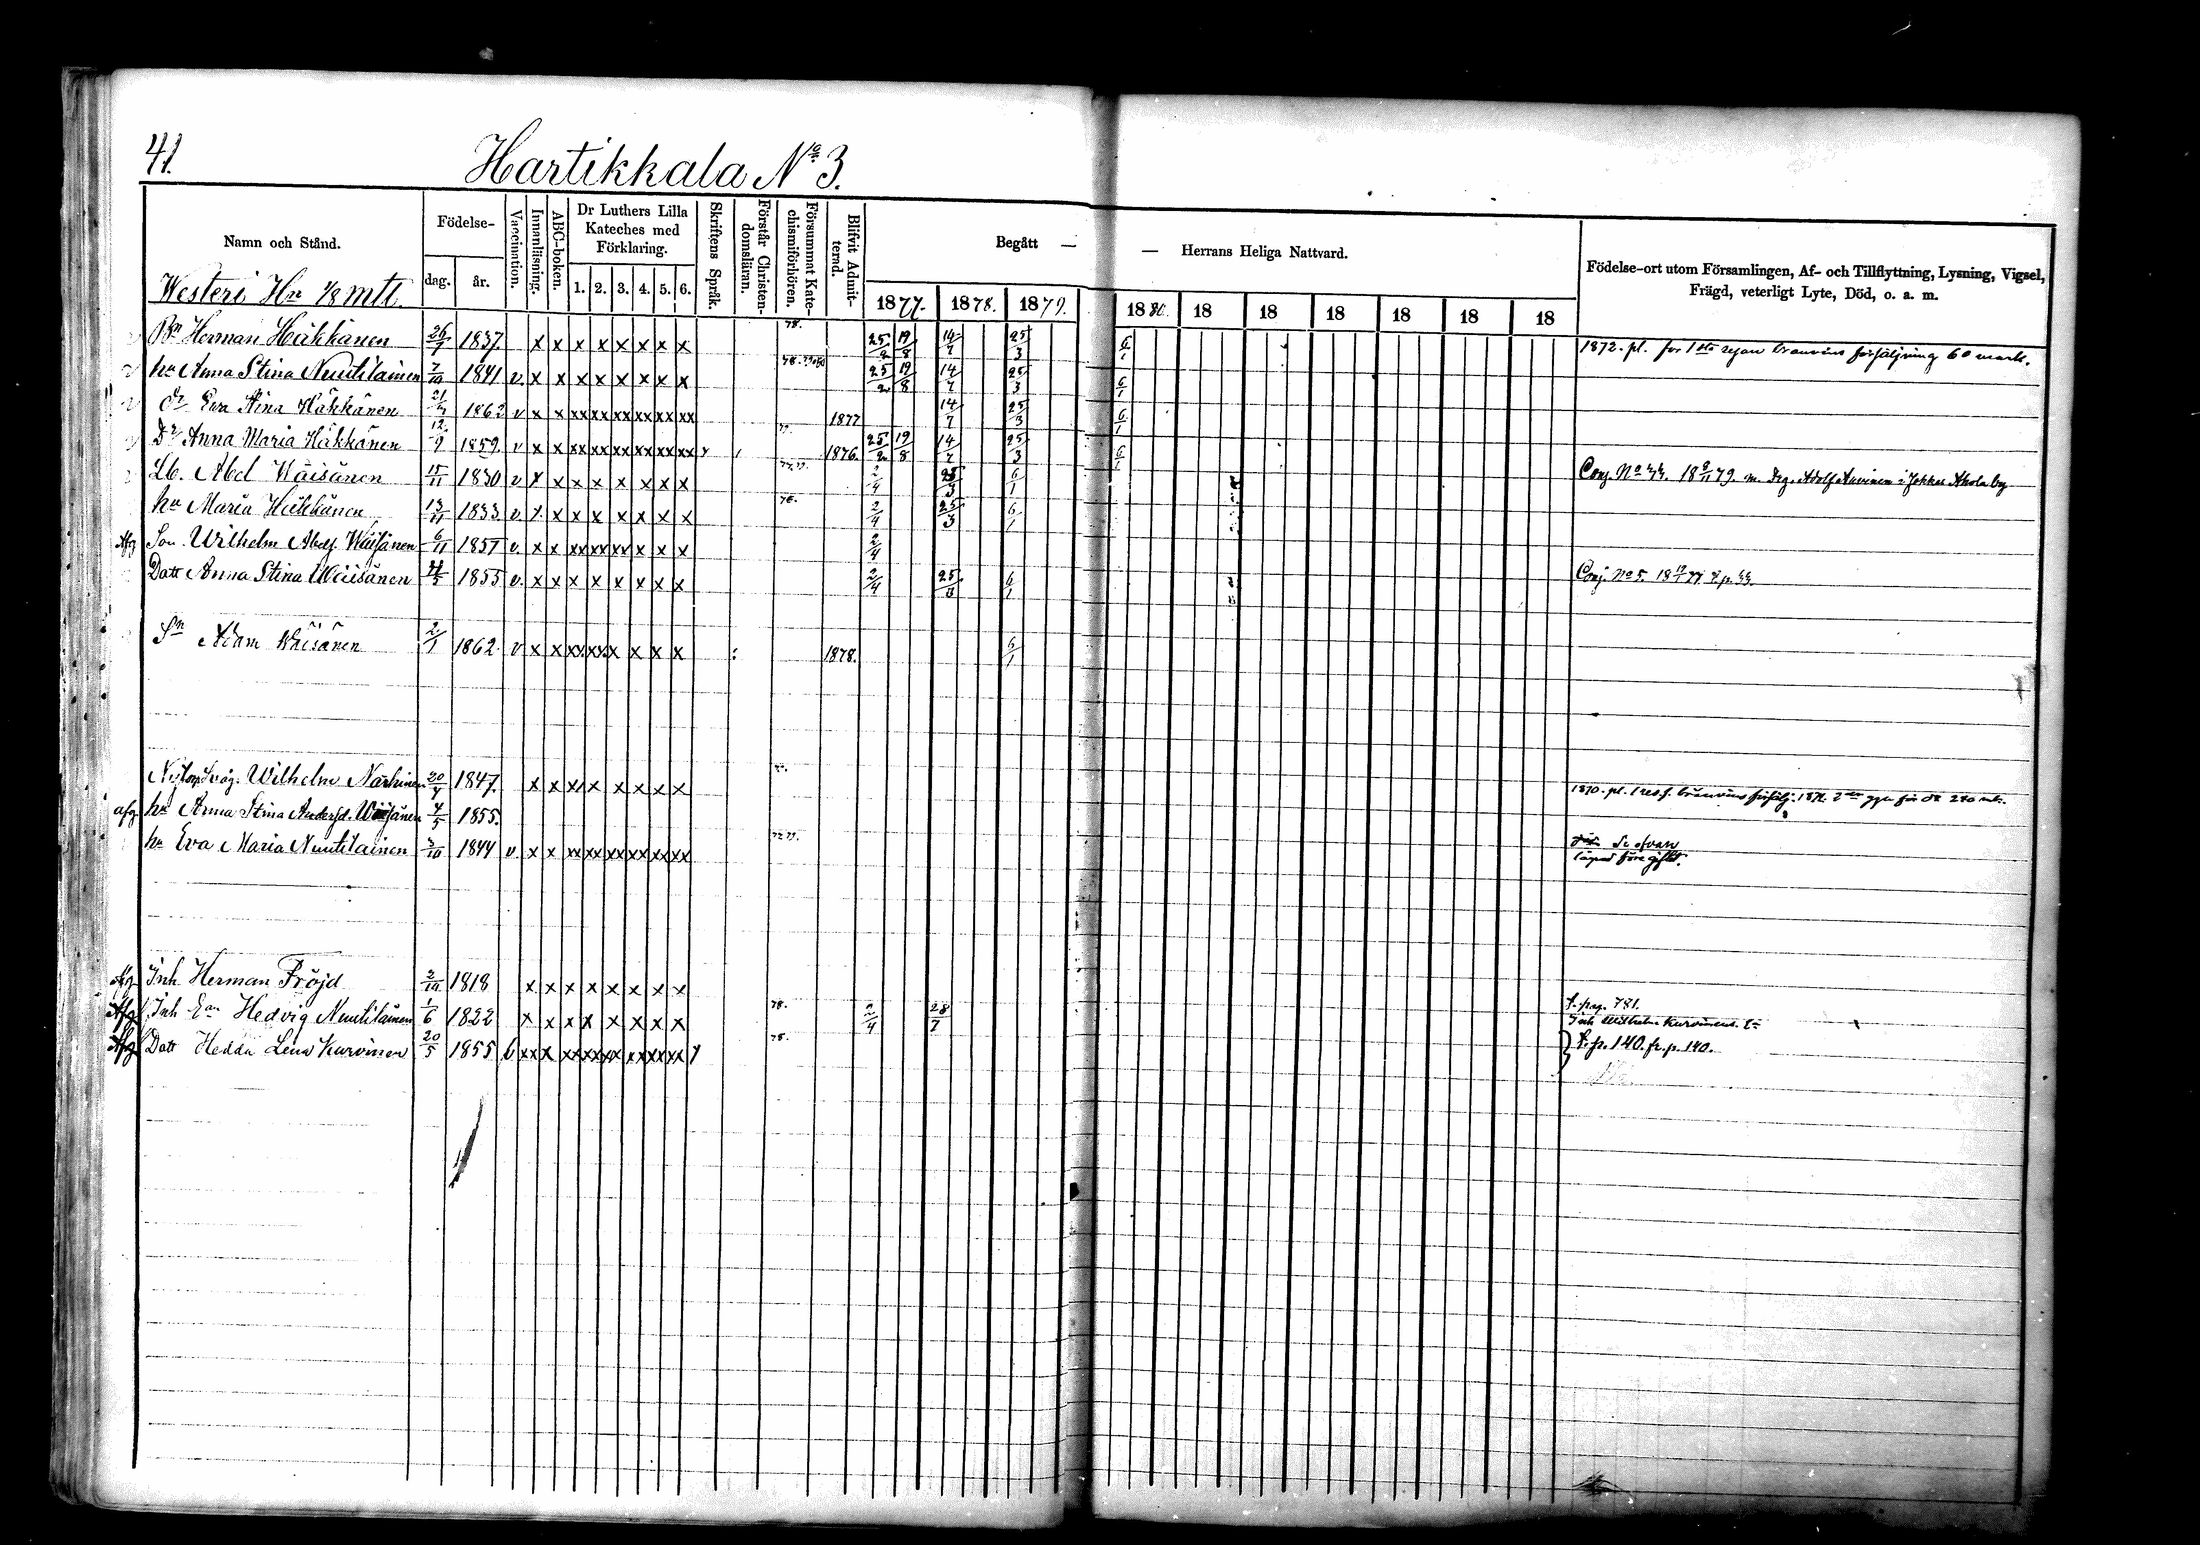 41.
Hartikkala No 3.
Namn och Stånd.
Födelse-
dag.
år.
Vaccination.
Innanläsning.
ABC-boken.
Dr Luthers Lilla
Kateches med
Förklaring.
1. 2. 3. 4. 5. 6.
Skriftens Språk.
Förstår Christen-
domsläran.
Försummat Kate-
chismiförhören.
Blifvit Admit-
terad.
Begått — — Herrans Heliga Nattvard.
1877. 1878. 1879. 1880. 18 18 18 18 18 18
Födelse-ort utom Församlingen, Af- och Tillflyttning, Lysning, Vigsel,
Frägd, veterligt Lyte, Död, o. a. m.
Westeri Hn 1/8 mtl.
Bn Herman Häkkänen 26/7 1837. x x x x x x x x 78. 25/2 19/8 14/7 25/3 6/1 1872. pl. för 1sta resan bränvins försäljning 60 mark.
hu Anna Stina Nuutilainen 7/10 1841 v. x x x x x x x x 25/2 19/8 14/7 25/3 6/1
Dr Eva Stina Häkkänen 1862 v x x xx xx xx xx xx xx 1877 14/7 25/3 6/1
Dr Anna Maria Häkkänen 12/9 1859. v x x xx xx xx xx xx xx 1876. 25/2 19/8 14/7 25/3 6/1
Lb. Abel Wäisänen 15/11 1830 v x x x x x x x x 2/4 25/3 6/1 Conj. No 44. 18 9/11 79. m. Drg. Adolf Auvinen i Jokkas Ahola by
hu Maria Häkkänen 13/11 1833 v. x x x x x x x x 76. 2/4 25/3 6/1
Afg Son Wilhelm Abelf. Wäisänen 6/11 1857 v. x x xx xx xx x x x 2/4
Datt Anna Stina Wäisänen 4/5 1855 v. x x x x x x x x 2/4 25/3 6/1 Conj. No 5.
Sn Adam Wäisänen 2/1 1862 v x x xx xx x x x x 1878. 6/1
Wilhelm Närhinen 20/4 1847. x x x x x x x x
afg hu Anna Stina Andersd. Wäisänen 4/5 1855.
hu Eva Maria Nuutilainen 3/10 1844 v x x xx xx xx xx xx xx
Afg Inh Herman Fröjd 1818 x x x x x x x x
Afg Inh Ean Hedvig Nuutilainen 1/6 1822 x x x x x x x x 78. 2/4 28/7 f. pag. 781.
Inh Wilhelm Kurvinens
Afg Datt Hedda Lena Kurvinen 20/5 1855 xx x xx xx xx xx xx xx 75. t. p. 140. fr. p. 140.